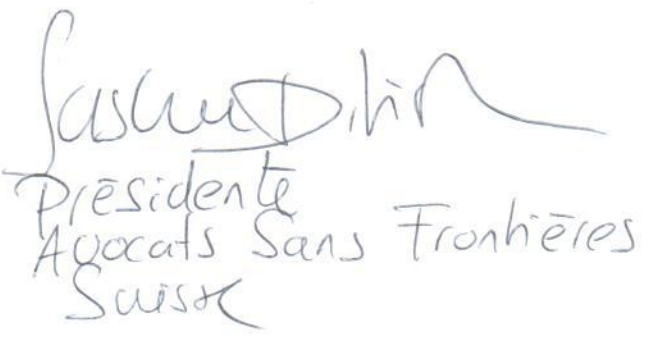 Présidente
Avocats Sans Frontières
Suisse